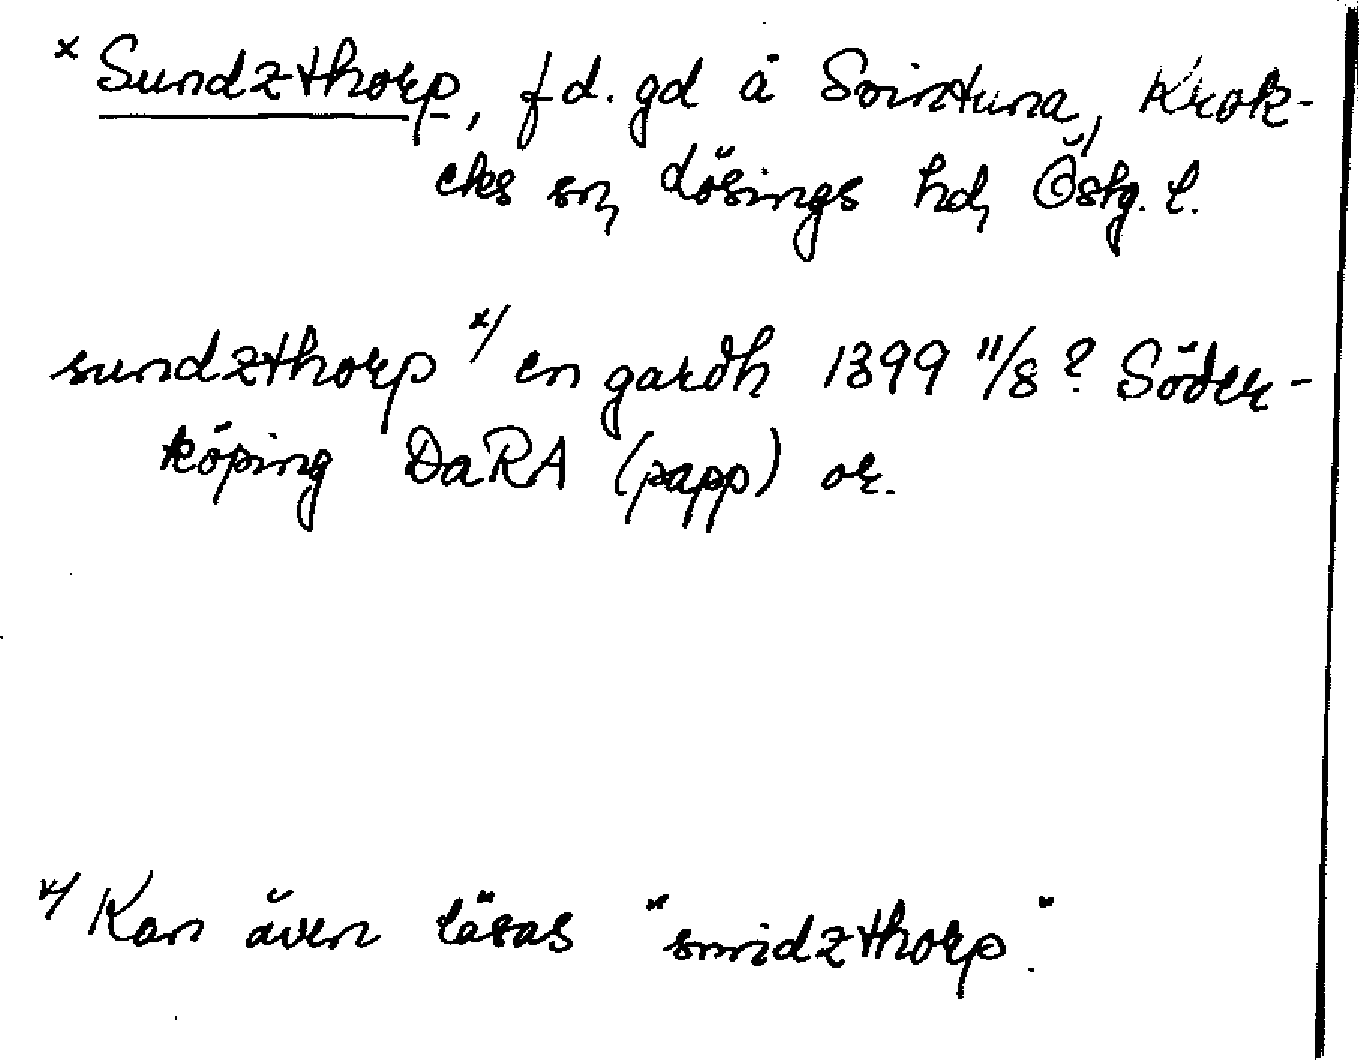 × Sundzthorp, fd. gd å Svintuna, Krok-
eks sn, Lösings hd, Östg. l.
sundzthorp x/ en gardh 1399 11/8? Söder-
köping DaRA (papp) or.
x/ Kan även läsas "smidzthorp".